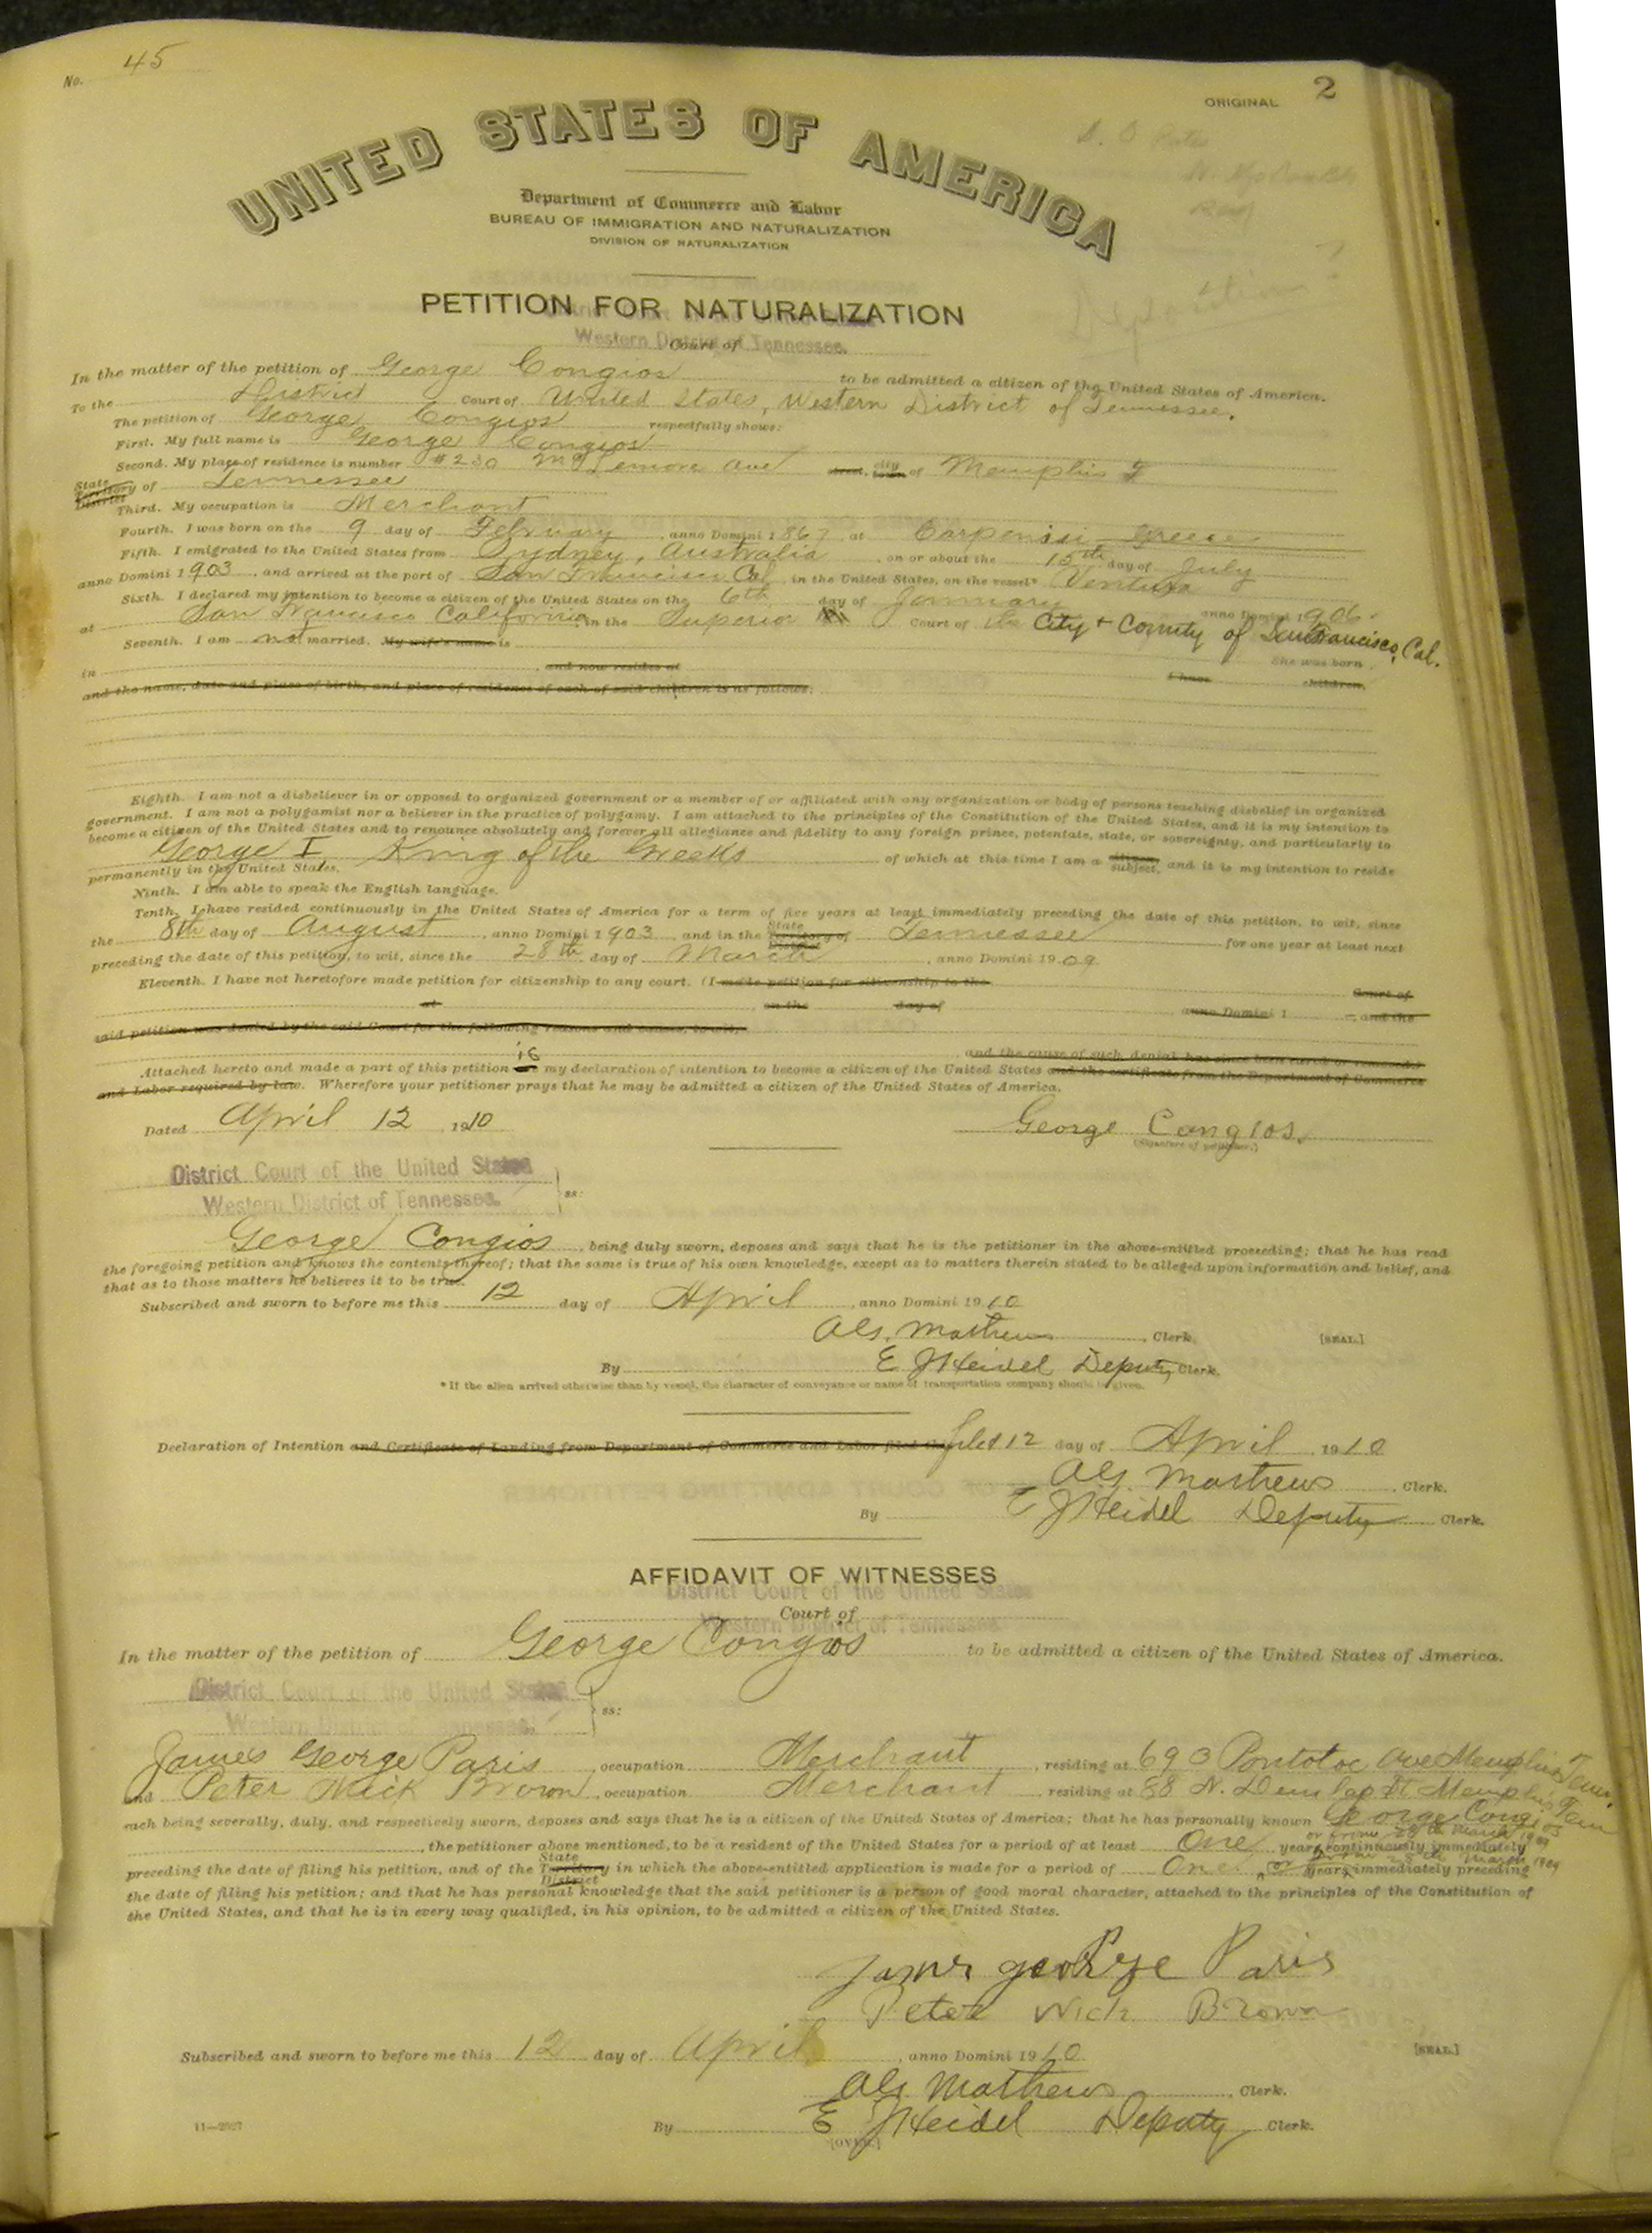 No. 45
ORIGINAL 2
UNITED STATES OF AMERICA
Department of Commerce and Labor
BUREAU OF IMMIGRATION AND NATURALIZATION
DIVISION OF NATURALIZATION
PETITION FOR NATURALIZATION
Court of
Western District of Tennessee.
In the matter of the petition of George Congios to be admitted a citizen of the United States of America.
To the District Court of United States, Western District of Tennessee.
The petition of George Congios respectfully shows:
First. My full name is George Congios
Second. My place of residence is number #230 McLemore Ave street, city town of Memphis
State Territory District of Tennessee
Third. My occupation is Merchant
Fourth. I was born on the 9 day of February, anno Domini 1867 at Carpenisi Greece
Fifth. I emigrated to the United States from Sydney, Australia, on or about the 15th day of July
anno Domini 1903, and arrived at the port of San Francisco Cal, in the United States, on the vessel* Ventura
Sixth. I declared my intention to become a citizen of the United States on the 6th day of January anno Domini 1906
at San Francisco California, in the Superior Court of the City + County of San Francisco, Cal.
Seventh. I am not married. My wife's name is
She was born
in and now resides at
I have children,
and the name, date and place of birth, and place of residence of each of said children is as follows:
Eighth. I am not a disbeliever in or opposed to organized government or a member of or affiliated with any organization or body of persons teaching disbelief in organized
government. I am not a polygamist nor a believer in the practice of polygamy. I am attached to the principles of the Constitution of the United States, and it is my intention to
become a citizen of the United States and to renounce absolutely and forever all allegiance and fidelity to any foreign prince, potentate, state, or sovereignty, and particularly to
George I King of the Greeks of which at this time I am a citizen subject, and it is my intention to reside
permanently in the United States.
Ninth. I am able to speak the English language.
Tenth. I have resided continuously in the United States of America for a term of five years at least immediately preceding the date of this petition, to wit, since
the 8th day of August, anno Domini 1903, and in the State Territory of District Tennessee for one year at least next
preceding the date of this petition, to wit, since the 28th day of March, anno Domini 1909
Eleventh. I have not heretofore made petition for citizenship to any court. (I made petition for citizenship to the
Court of
at on the day of anno Domini 1 , and the
said petition was denied by the said Court for the following reasons and causes, to wit,
and the cause of such denial has since been cured or removed.)
Attached hereto and made a part of this petition is my declaration of intention to become a citizen of the United States and the certificate from the Department of Commerce
and Labor required by law. Wherefore your petitioner prays that he may be admitted a citizen of the United States of America.
Dated April 12 1910 George Congios.
(Signature of petitioner.)
District Court of the United States
Western District of Tennessee. ss:
George Congios, being duly sworn, deposes and says that he is the petitioner in the above-entitled proceeding; that he has read
the foregoing petition and knows the contents thereof; that the same is true of his own knowledge, except as to matters therein stated to be alleged upon information and belief, and
that as to those matters he believes it to be true.
Subscribed and sworn to before me this 12 day of April, anno Domini 1910
Mathews, Clerk. [SEAL.]
By E J Heidel Deputy Clerk.
* If the alien arrived otherwise than by vessel, the character of conveyance or name of transportation company should be given.
Declaration of Intention and Certificate of Landing from Department of Commerce and Labor filed this filed 12 day of April, 1910
Mathews, Clerk.
By E J Heidel Deputy Clerk.
AFFIDAVIT OF WITNESSES
District Court of the United States
Court of
Western District of Tennessee
In the matter of the petition of George Congios to be admitted a citizen of the United States of America.
District Court of the United States
Western District of Tennessee. ss:
James George Paris, occupation Merchant, residing at 693 Pontotoc Ave Memphis Tenn.
and Peter Nick Brown, occupation Merchant, residing at 88 N. Dunlap St Memphis Tenn
each being severally, duly, and respectively sworn, deposes and says that he is a citizen of the United States of America; that he has personally known George Congios
or from 28th March 1909
, the petitioner above mentioned, to be a resident of the United States for a period of at least One years continuously immediately
preceding the date of filing his petition, and of the State Territory District in which the above-entitled application is made for a period of One or from 28th March 1909 years immediately preceding
the date of filing his petition; and that he has personal knowledge that the said petitioner is a person of good moral character, attached to the principles of the Constitution of
the United States, and that he is in every way qualified, in his opinion, to be admitted a citizen of the United States.
James George Paris
Peter Nick Brown
Subscribed and sworn to before me this 12 day of April, anno Domini 1910 [SEAL.]
Mathews, Clerk.
11—2027 By E J Heidel Deputy Clerk.
[OVER.]